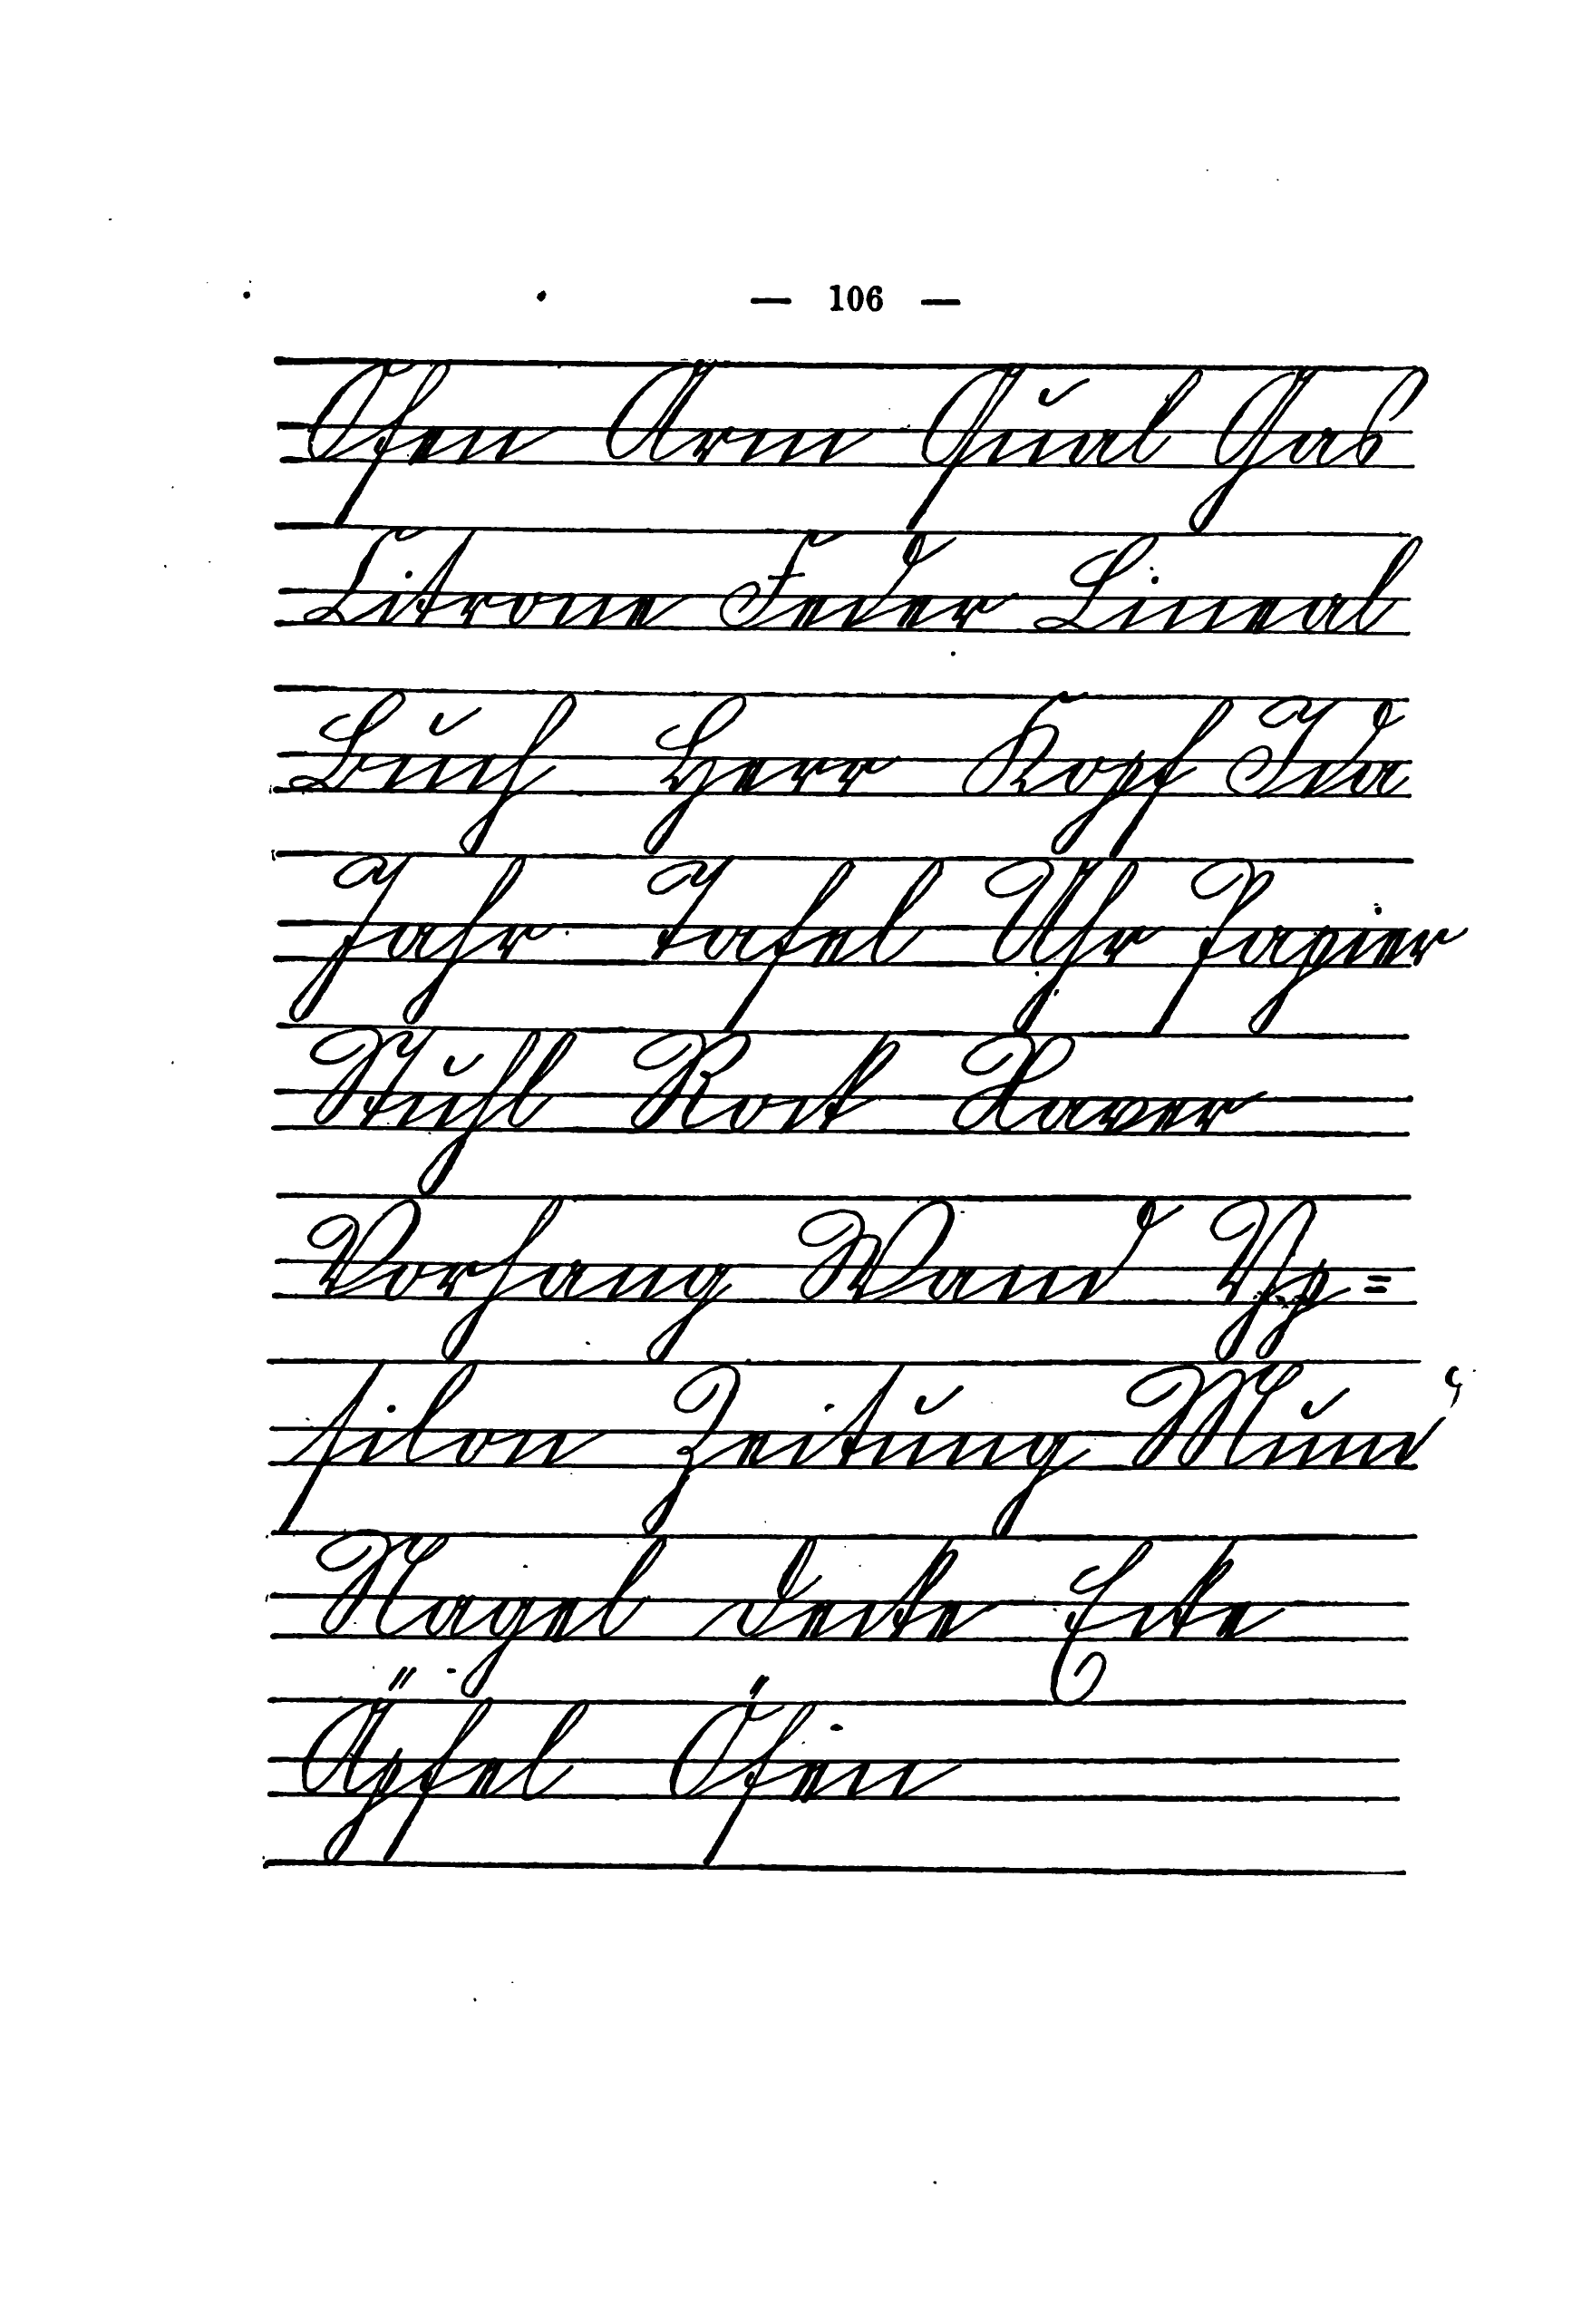 — 106 —
Ofen Arm Qual Gas
Citrone Feder Lineal
Buch Herr Kopf Ida
Jahr Tafel Uhr Papier
Stuhl Rock Xaver
Vorhang Wand Yp=
silon Zeitung Mund
Nagel Decke Ecke
Äpfel Öfen